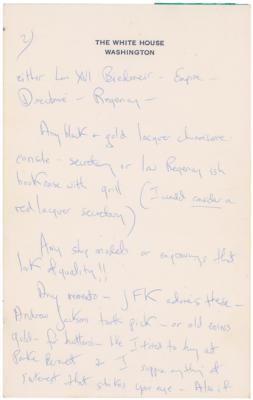 2)
THE WHITE HOUSE
WASHINGTON
either Louis XVI Biedermeir - Empire -
Directoire - Regency -
Any black & gold lacquer chinoiserie
console - secretary or low Regency ish
bookcase with grill (I would consider a
red lacquer secretary)
Any ship models or engravings that
look of quality!!
Any memento - JFK
Andrew Jackson tooth pick - or old coins
gold - for buttons like I tried to buy at
Parke Bernet & I suppose anything of
interest that strikes your eye - Also if